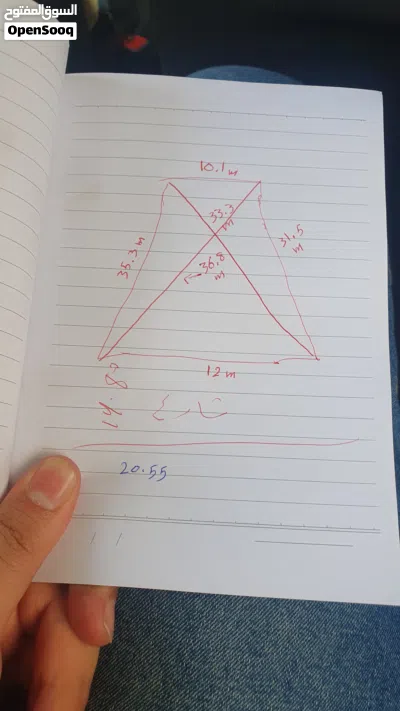 السوق المفتوح
OpenSooq
10.1 m
33.3 m
35.3 m
31.5 m
36.8 m
12 m
شارع
20.55